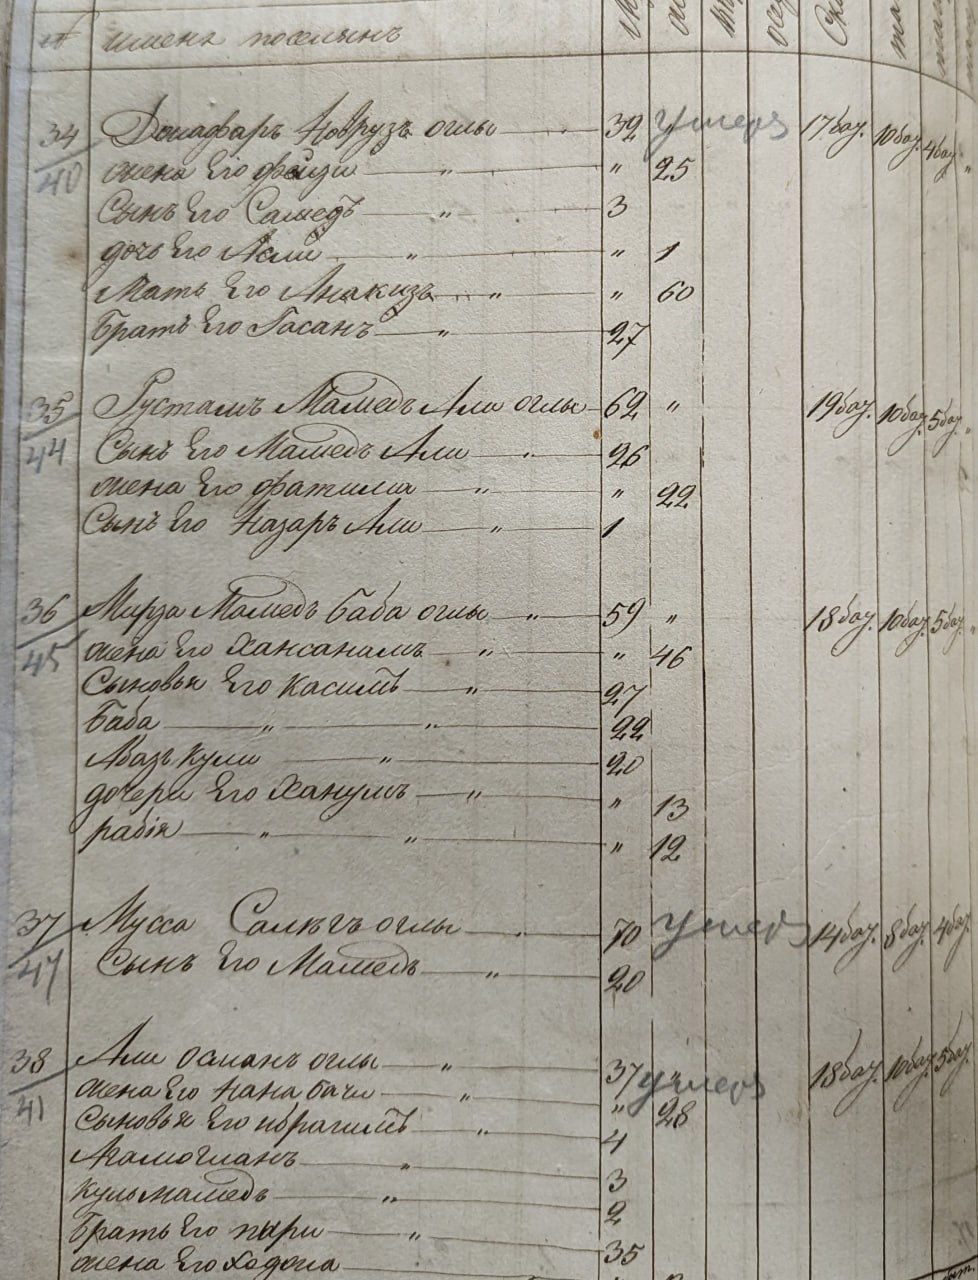 № имена поселянъ
34 Джафаръ Новрузъ оглы 39 умеръ 17 баз. 10 баз. 4 баз.
40 жена Его фейзи " " 25
Сынъ Его Самедъ " 3
дочь Его Асли " " 1
Мать Его Анакизъ " " 60
Братъ Его Гасанъ " 27
35 Рустамъ Мамедъ Али оглы 62 " 19 баз. 10 баз. 5 баз. "
44 Сынъ Его Мамедъ Али " 26
жена Его фатима " " 22
Сынъ Его Назаръ Али " 1
36 Мирза Мамедъ баба оглы " 59 " 18 баз. 10 баз. 5 баз. "
45 жена Его Хансанамъ " " 46
Сыновья Его Касимъ " 27
Баба " " 22
Авазъ кули " 20
дочери Его Ханумъ " " 13
рабія " " " 12
37 Мусса Салегъ оглы " 70 умеръ 14 баз. 8 баз. 4 баз.
47 Сынъ Его Мамедъ " 20
38 Али османъ оглы " 37 умеръ 18 баз. 10 баз. 5 баз.
41 жена Его нана бачи " " 28
Сыновья Его ибрагимъ " 4
Агамогланъ " 3
кульмамедъ " 2
Братъ Его пири " 35
жена Его Ходжа